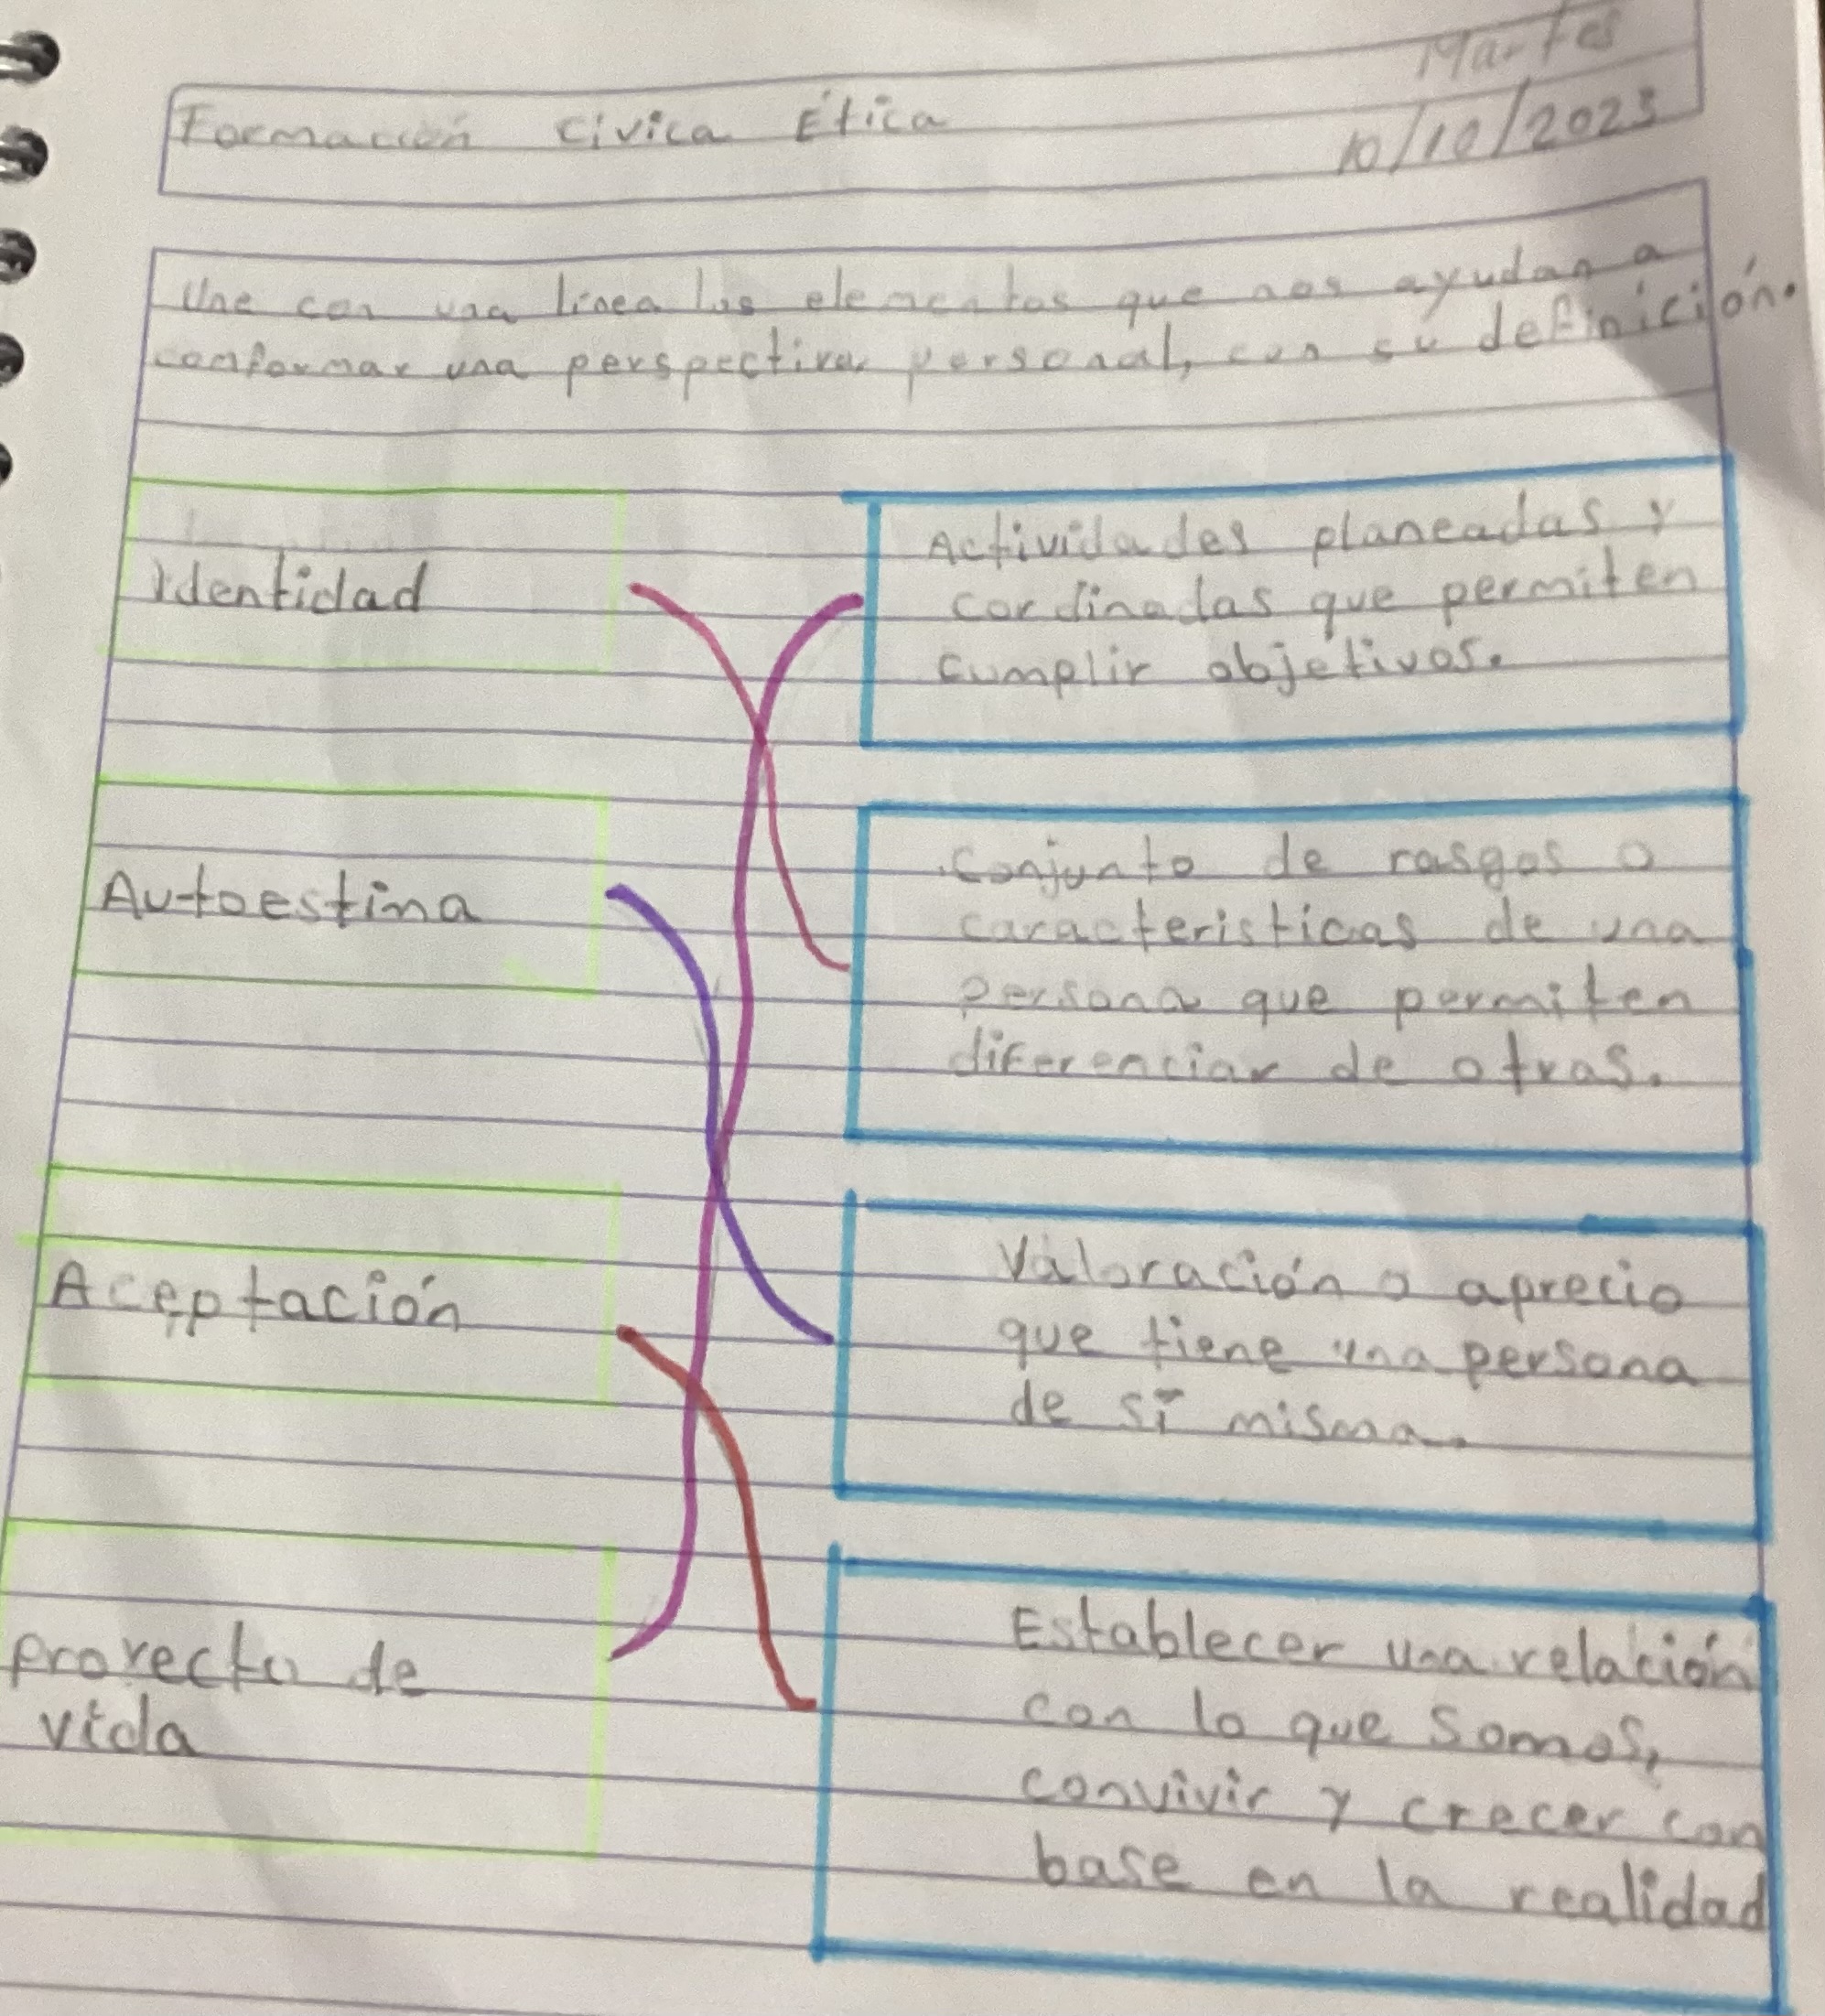 Martes
Formación Cívica Ética
10/10/2023
Une con una línea los elementos que nos ayudan a
conformar una perspectiva personal, con su definición.
Identidad
Autoestina
Aceptación
proyecto de
vida
Actividades planeadas y
cordinadas que permiten
cumplir objetivos.
Conjunto de rasgos o
caracteristicas de una
persona que permiten
diferenciar de otras.
Valoración o aprecio
que tiene una persona
de sí misma.
Establecer una relación
con lo que somos,
convivir y crecer con
base en la realidad